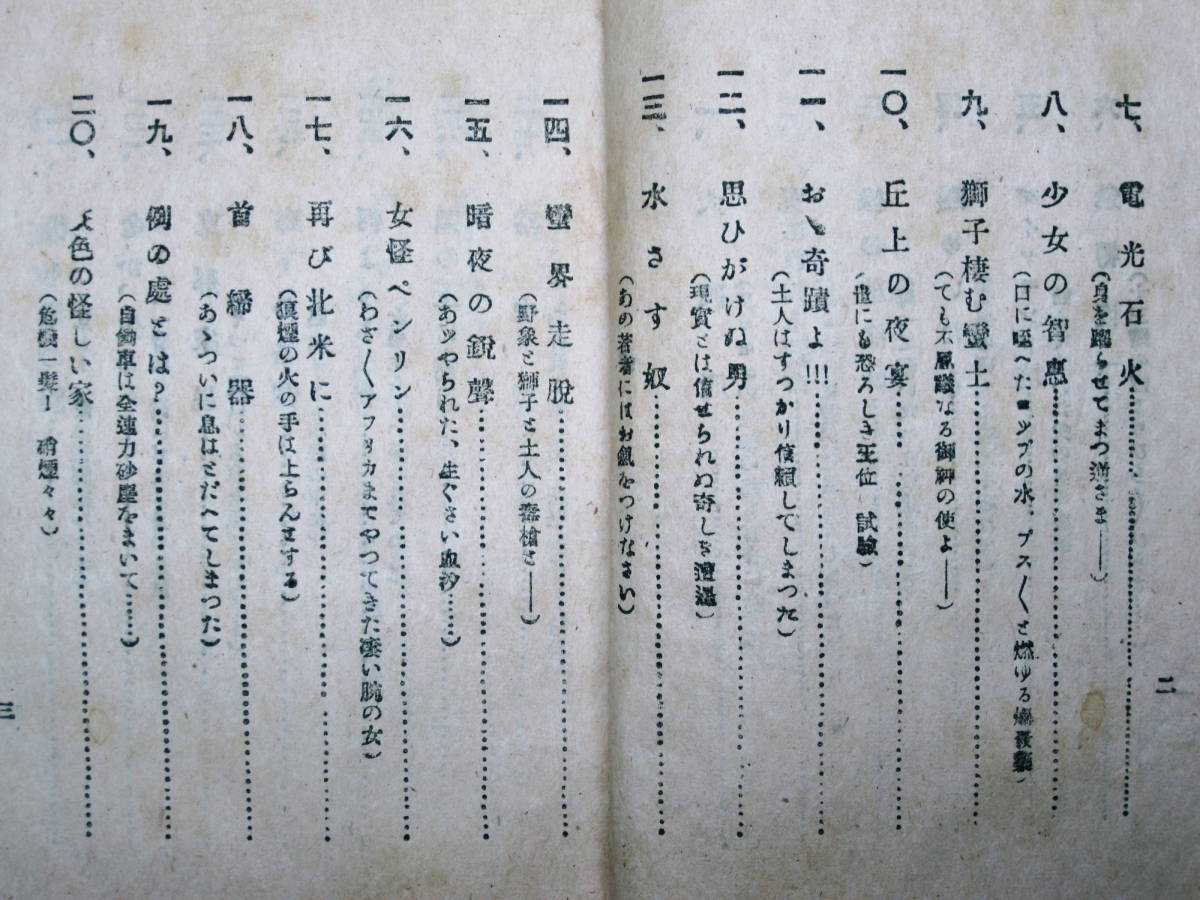 七、電光石火
(身を躍らせてまつ逆さま――)
八、少女の智惠
(口に啣へたコツプの水、プス〱と燃ゆる爆發藥)
九、獅子棲む蠻土
(ても不思議なる御神の使よ――)
一〇、丘上の夜宴
世にも恐ろしき王位 試驗)
一一、おゝ奇蹟よ!!!
(土人はすつかり信頼してしまつた)
一二、思ひがけぬ男
(現實とは信せられぬ奇しき遭遇)
一三、水さす奴
(あの著者にはお氣をつけなさい)
二
一四、蠻界走脱
(野象と獅子と土人の毒槍さ――)
一五、暗夜の鋭聲
(あツやられた、生ぐさい血汐……)
一六、女怪ペンリン
(わざ〱アフリカまでやつてきた凄い腕の女)
一七、再び北米に
(猛煙の火の手は上らんとする)
一八、首締器
(あゝついに息はとだへてしまつた)
一九、例の處とは?
(自働車は全速力砂塵をまいて……)
二〇、灰色の怪しい家
(危機一髮! 硝煙々々)
三